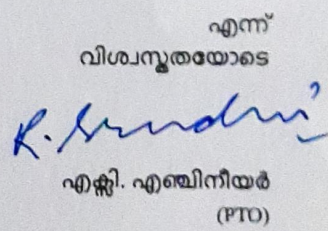 എന്ന്
വിശ്വസ്തതയോടെ
എക്സി. എഞ്ചിനീയർ
(PTO)